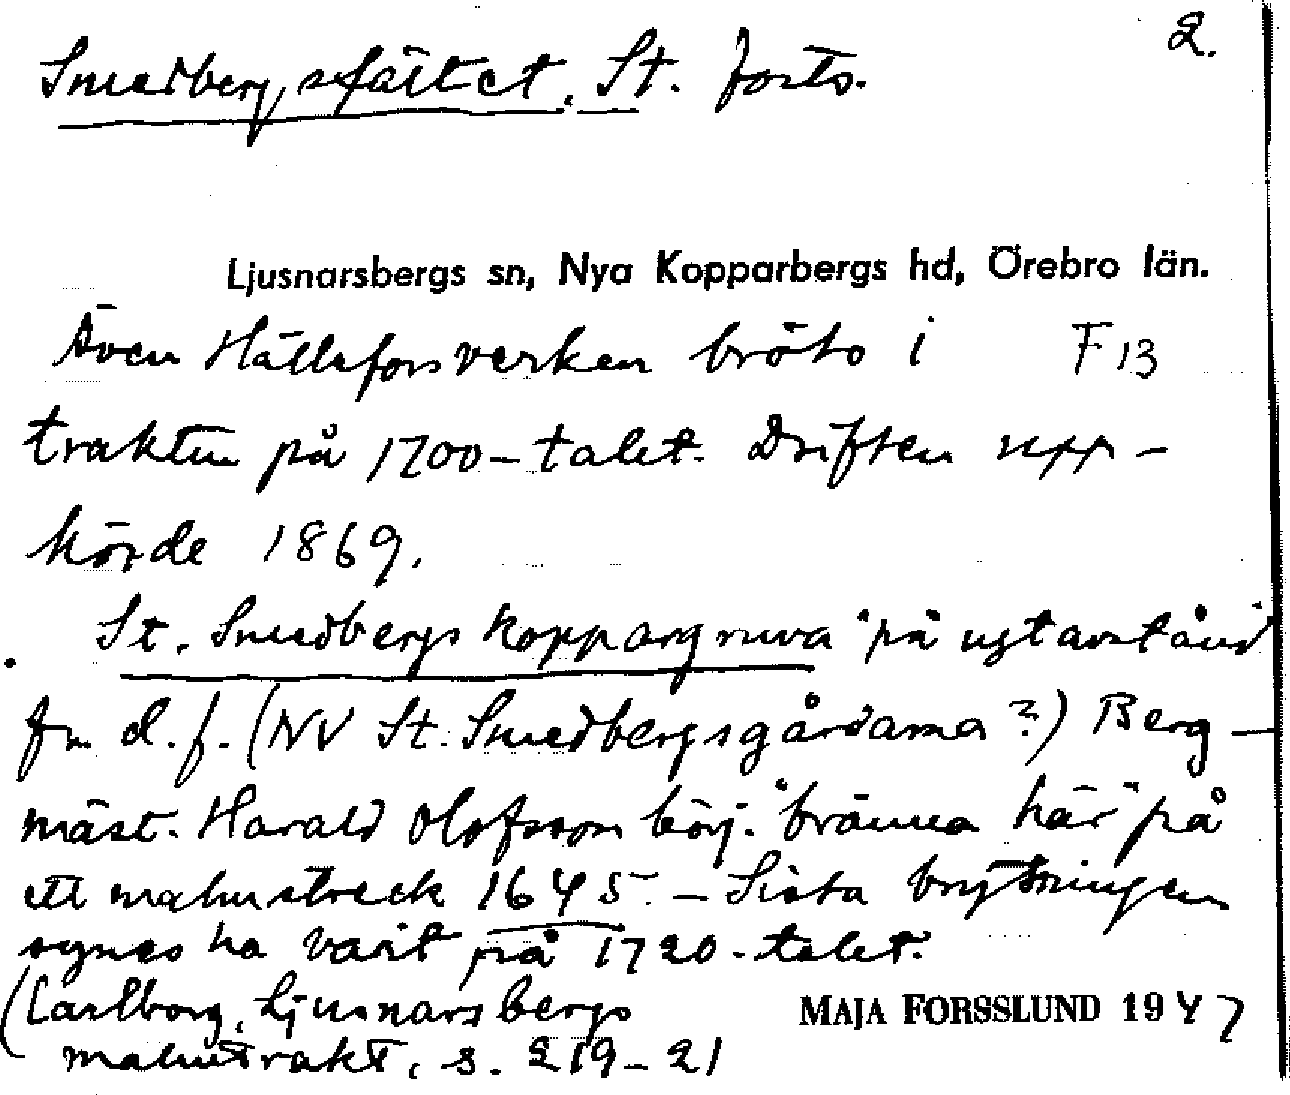 2.
Smedbergsfältet, St. forts.
Ljusnarsbergs sn, Nya Kopparbergs hd, Örebro län.
Även Hälleforsverken bröto i F 13
trakten på 1700-talet. Driften upp-
hörde 1869.
St. Smedbergs koppargruva "på ngt avstånd"
fr. d. f. (NV St. Smedbergsgårdarna?) Berg-
mäst. Harald Olofsson börj. "bränna här" på
ett malmstreck 1645. - Sista brytningen
synes ha varit på 1720-talet.
(Carlborg, Ljusnarsbergs
malmtrakt, s. 219-21
MAJA FORSSLUND 1947